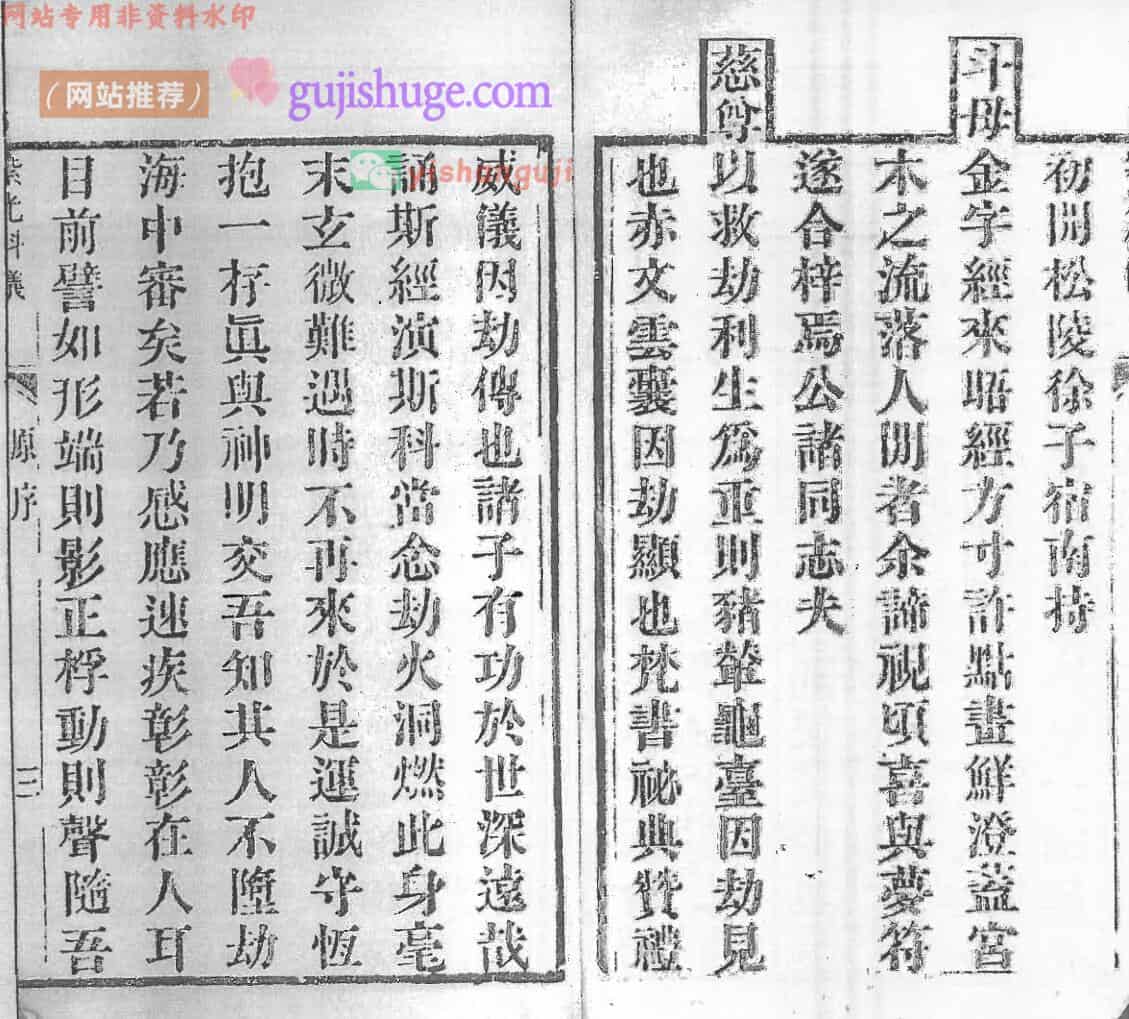 网站专用非资料水印
（网站推荐）
gujishuge.com
yishanguji
初開松陵徐子宿南持
斗母
金字經來晤經方寸許點畫鮮澄蓋宮
木之流落人間者余諦視頃喜與夢符
遂合梓焉公諸同志夫
慈尊
以救劫利生爲重則豬輦龜臺因劫見
也赤文雲囊因劫顯也梵書祕典贊禮
威儀因劫傳也諸子有功於世深遠哉
誦斯經演斯科當念劫火洞燃此身毫
末玄微難遇時不再來於是運誠守恆
抱一存眞與神明交吾知其人不墮劫
海中審矣若乃感應速疾彰彰在人耳
目前譬如形端則影正桴動則聲隨吾
光科儀
原序
三